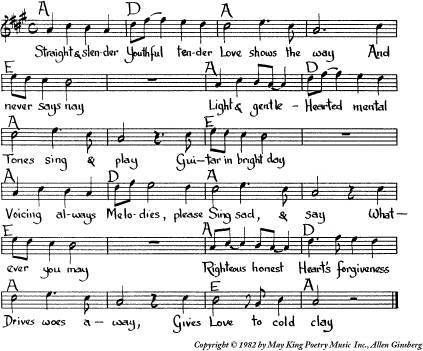 A D A
Straight & slen-der Youthful ten-der Love shows the way And
E A D
never says nay Light & gentle - Hearted mental
A E
Tones sing & play Gui-tar in bright day
A D A
Voicing al-ways Melo-dies, please Sing sad, & say What-
E A D
ever you may Righteous honest Heart's forgiveness
A E A
Drives woes a-way, Gives Love to cold clay
Copyright © 1982 by May King Poetry Music Inc., Allen Ginsberg